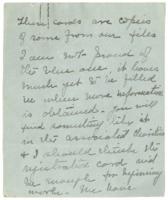 These cards are copies
of some from our files
I am not proud of
the blue one it leaves
much yet to be filled
in when more information
is obtained. You will
find something like it
in the associated charities
& I should think the
registration card and
be enough for beginning
work. We have